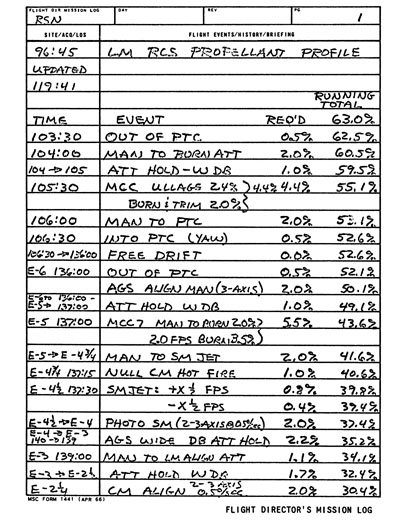 FLIGHT DIR MISSION LOG DAY REV PG
RSN 1
SITE/ACQ/LOS FLIGHT EVENTS/HISTORY/BRIEFING
96:45 LM RCS PROPELLANT PROFILE
UPDATED
119:41
RUNNING
TOTAL
TIME EVENT REQ'D 63.0%
103:30 OUT OF PTC 0.5% 62.5%
104:00 MAN TO BURN ATT 2.0% 60.5%
104 → 105 ATT HOLD - W DB 1.0% 59.5%
105:30 MCC ULLAGE 2.4% } 4.4% 4.4% 55.1%
BURN & TRIM 2.0% }
106:00 MAN TO PTC 2.0% 53.1%
106:30 INTO PTC (YAW) 0.5% 52.6%
106:30 → 136:00 FREE DRIFT 0.0% 52.6%
E-6 136:00 OUT OF PTC 0.5% 52.1%
AGS ALIGN MAN (3-AXIS) 2.0% 50.1%
E-6 TO 136:00 -
E-5 → 137:00 ATT HOLD W DB 1.0% 49.1%
E-5 137:00 MCC7 MAN TO BURN 2.0% } 5.5% 43.6%
2.0 FPS BURN 3.5% }
E-5 → E-4¾ MAN TO SM JET 2.0% 41.6%
E-4¾ 137:15 NULL CM HOT FIRE 1.0% 40.6%
E-4½ 137:30 SM JET: +X ½ FPS 0.8% 39.8%
-X ½ FPS 0.4% 39.4%
E-4½ → E-4 PHOTO SM (2-3 AXIS @ 0.5°/SEC) 2.0% 37.4%
E-4 → E-3
140 → 139 AGS WIDE DB ATT HOLD 2.2% 35.2%
E-3 139:00 MAN TO LM ALIGN ATT 1.1% 34.1%
E-3 → E-2½ ATT HOLD W DB 1.7% 32.4%
E-2½ CM ALIGN 2-3 AXIS 0.5°/SEC 2.0% 30.4%
MSC FORM 1441 (APR 66)
FLIGHT DIRECTOR'S MISSION LOG